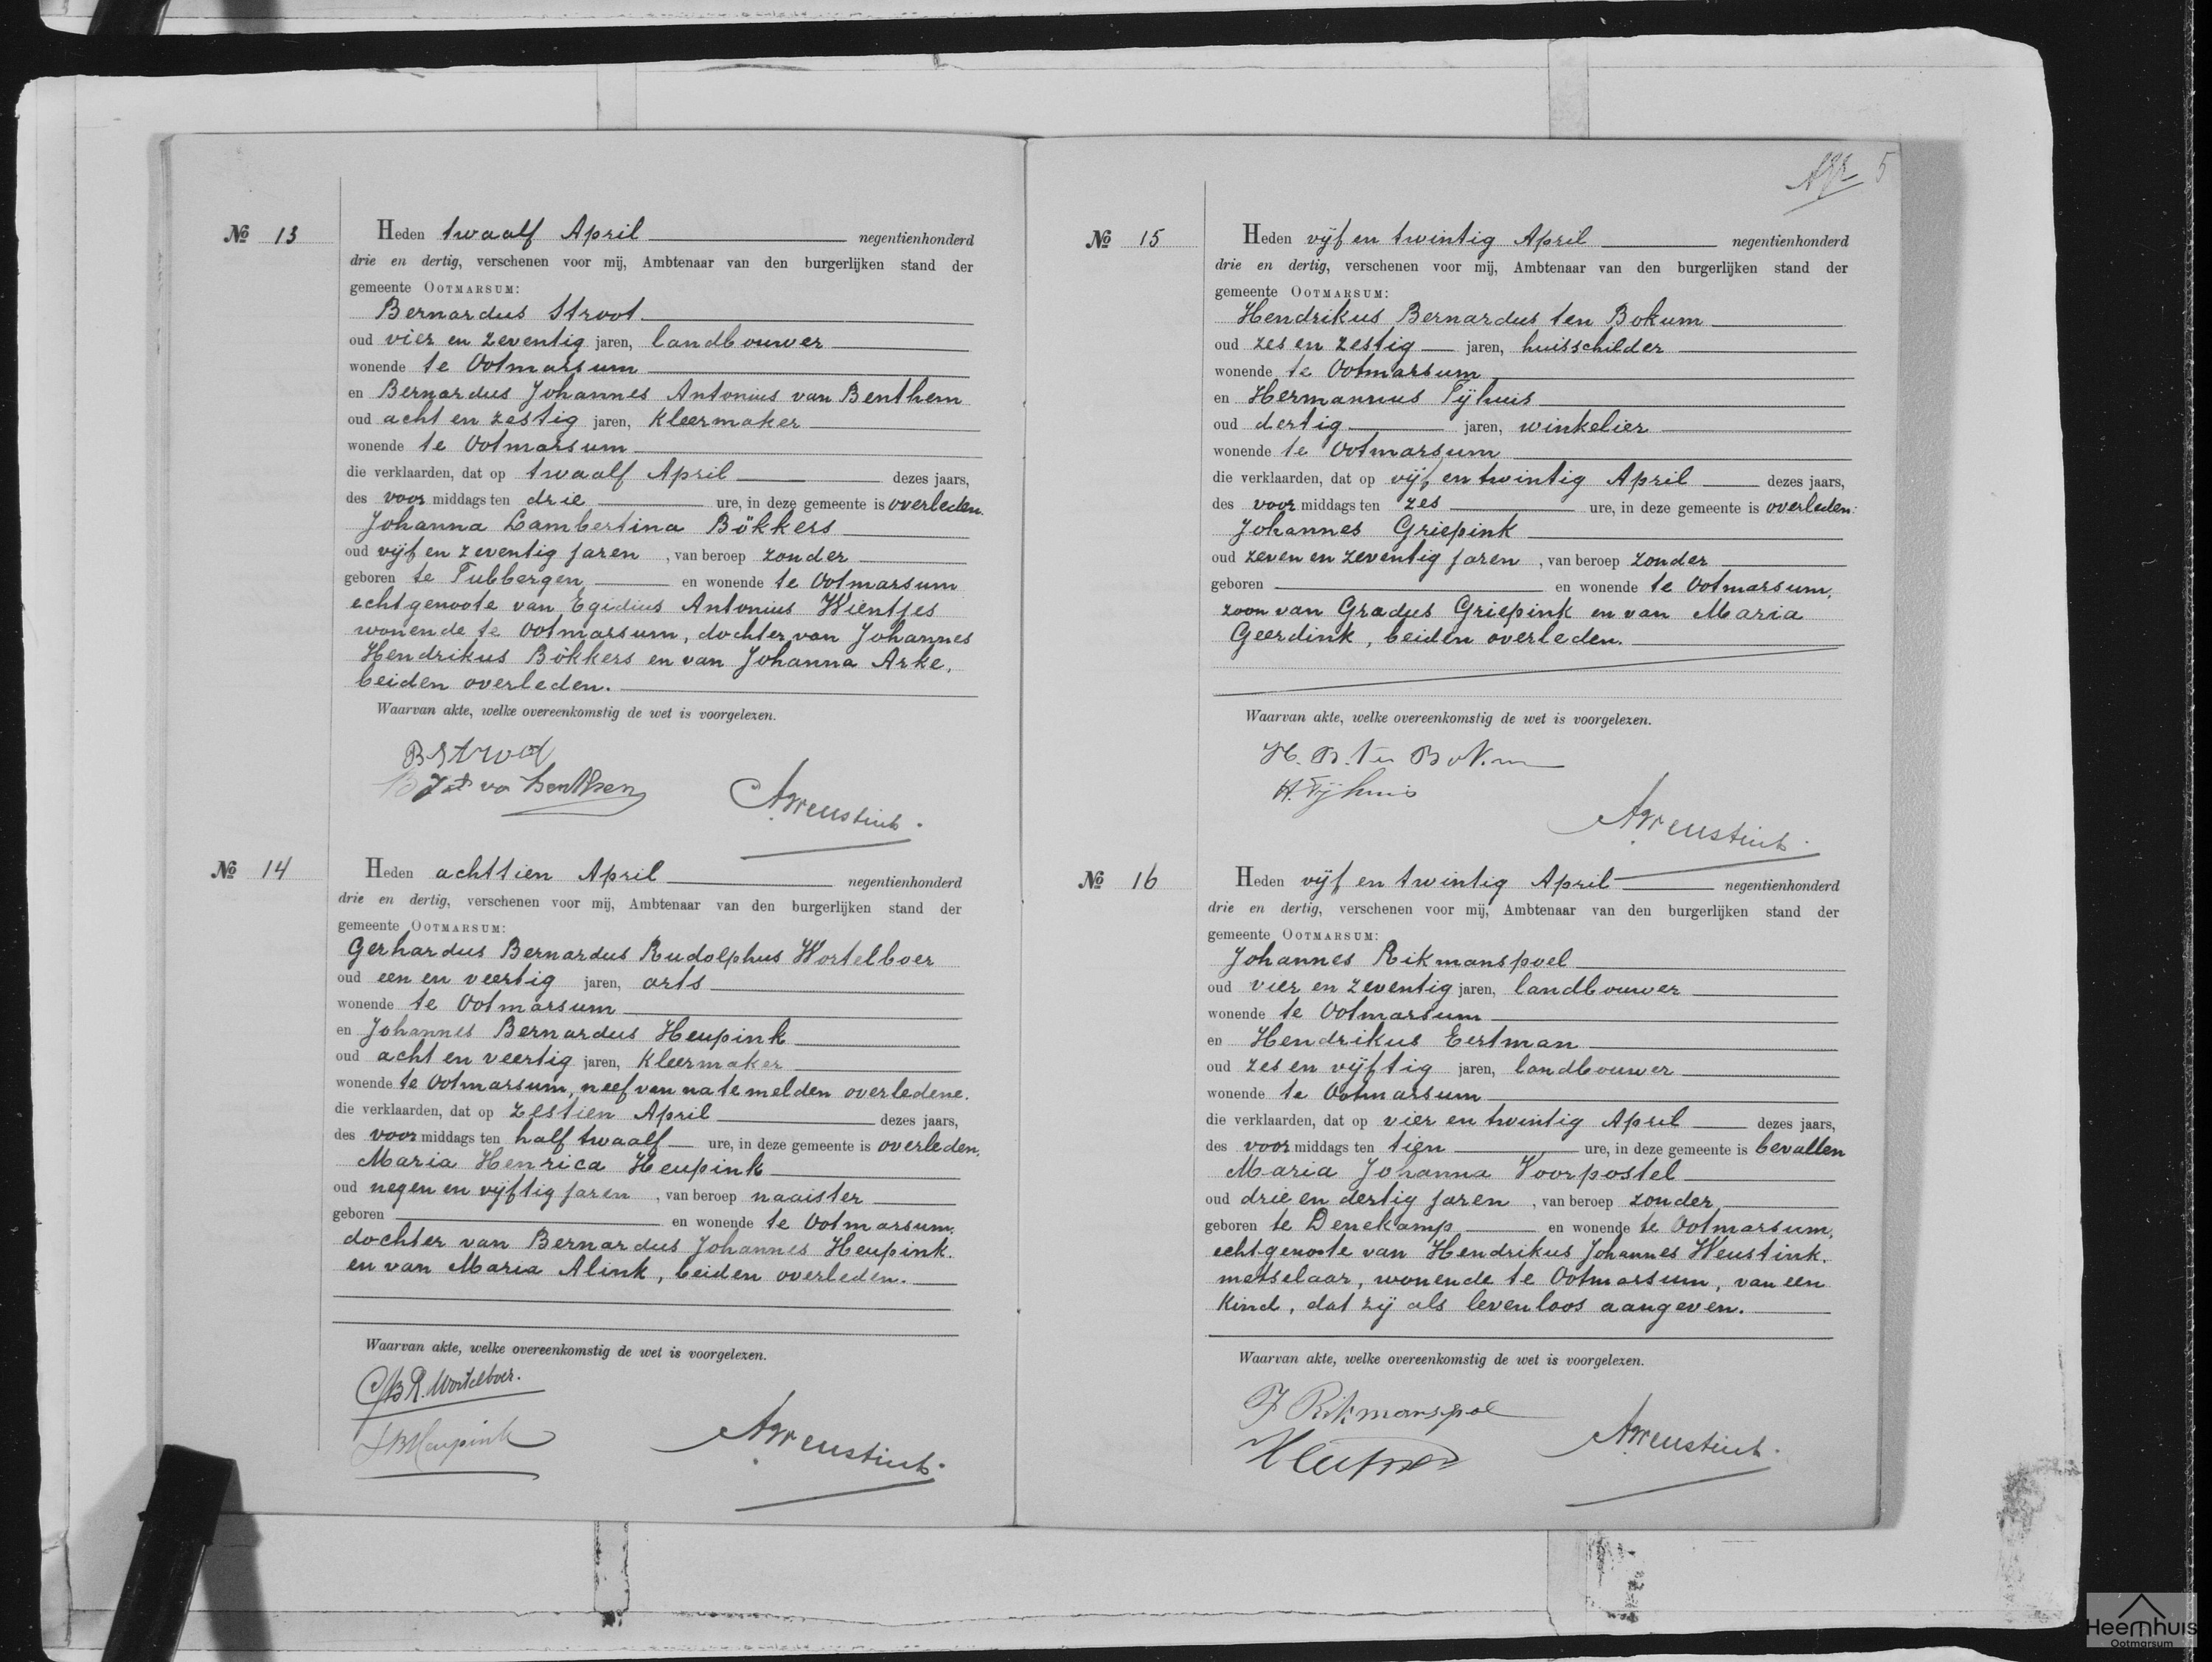 № 13
Heden twaalf April negentienhonderd
drie en dertig, verschenen voor mij, Ambtenaar van den burgerlijken stand der
gemeente OOTMARSUM:
Bernardus Stroot
oud vier en zeventig jaren, landbouwer
wonende te Ootmarsum
en Bernardus Johannes Antonius van Benthem
oud acht en zestig jaren, kleermaker
wonende te Ootmarsum
die verklaarden, dat op twaalf April dezes jaars,
des voormiddags ten drie ure, in deze gemeente is overleden.
Johanna Lambertina Bökkers
oud vijf en zeventig jaren, van beroep zonder
geboren te Tubbergen, en wonende te Ootmarsum
echtgenoote van Egidius Antonius Wientjes
wonende te Ootmarsum, dochter van Johannes
Hendrikus Bökkers en van Johanna Arke,
beiden overleden.
Waarvan akte, welke overeenkomstig de wet is voorgelezen.
B Stroot
AWeustink.
№ 14
Heden achttien April negentienhonderd
drie en dertig, verschenen voor mij, Ambtenaar van den burgerlijken stand der
gemeente OOTMARSUM:
Gerhardus Bernardus Rudolphus Wortelboer
oud een en veertig jaren, arts
wonende te Ootmarsum
en Johannes Bernardus Heupink
oud acht en veertig jaren, kleermaker
wonende te Ootmarsum, neef van na te melden overledene.
die verklaarden, dat op zestien April dezes jaars,
des voormiddags ten half twaalf ure, in deze gemeente is overleden.
Maria Henrica Heupink
oud negen en vijftig jaren, van beroep naaister
geboren en wonende te Ootmarsum,
dochter van Bernardus Johannes Heupink.
en van Maria Alink, beiden overleden.
Waarvan akte, welke overeenkomstig de wet is voorgelezen.
GBR. Wortelboer.
JBHeupink
AWeustink.
5
№ 15
Heden vijf en twintig April negentienhonderd
drie en dertig, verschenen voor mij, Ambtenaar van den burgerlijken stand der
gemeente OOTMARSUM:
Hendrikus Bernardus ten Bokum
oud zes en zestig jaren, huisschilder
wonende te Ootmarsum
en Hermannus Tijhuis
oud dertig jaren, winkelier
wonende te Ootmarsum
die verklaarden, dat op vijf en twintig April dezes jaars,
des voormiddags ten zes ure, in deze gemeente is overleden:
Johannes Griepink
oud zeven en zeventig jaren, van beroep zonder
geboren en wonende te Ootmarsum,
zoon van Gradus Griepink en van Maria
Geerdink, beiden overleden.
Waarvan akte, welke overeenkomstig de wet is voorgelezen.
H. B. ten Bokum
H. Tijhuis
AWeustink.
№ 16
Heden vijf en twintig April negentienhonderd
drie en dertig, verschenen voor mij, Ambtenaar van den burgerlijken stand der
gemeente OOTMARSUM:
Johannes Rikmanspoel
oud vier en zeventig jaren, landbouwer
wonende te Ootmarsum
en Hendrikus Eertman
oud zes en vijftig jaren, landbouwer
wonende te Ootmarsum
die verklaarden, dat op vier en twintig April dezes jaars,
des voormiddags ten tien ure, in deze gemeente is bevallen
Maria Johanna Voorpostel
oud drie en dertig jaren, van beroep zonder
geboren te Denekamp en wonende te Ootmarsum,
echtgenoote van Hendrikus Johannes Weustink.
metselaar, wonende te Ootmarsum, van een
kind, dat zij als levenloos aangeven.
Waarvan akte, welke overeenkomstig de wet is voorgelezen.
J Rikmanspoel
AWeustink.
Heemhuis
Ootmarsum